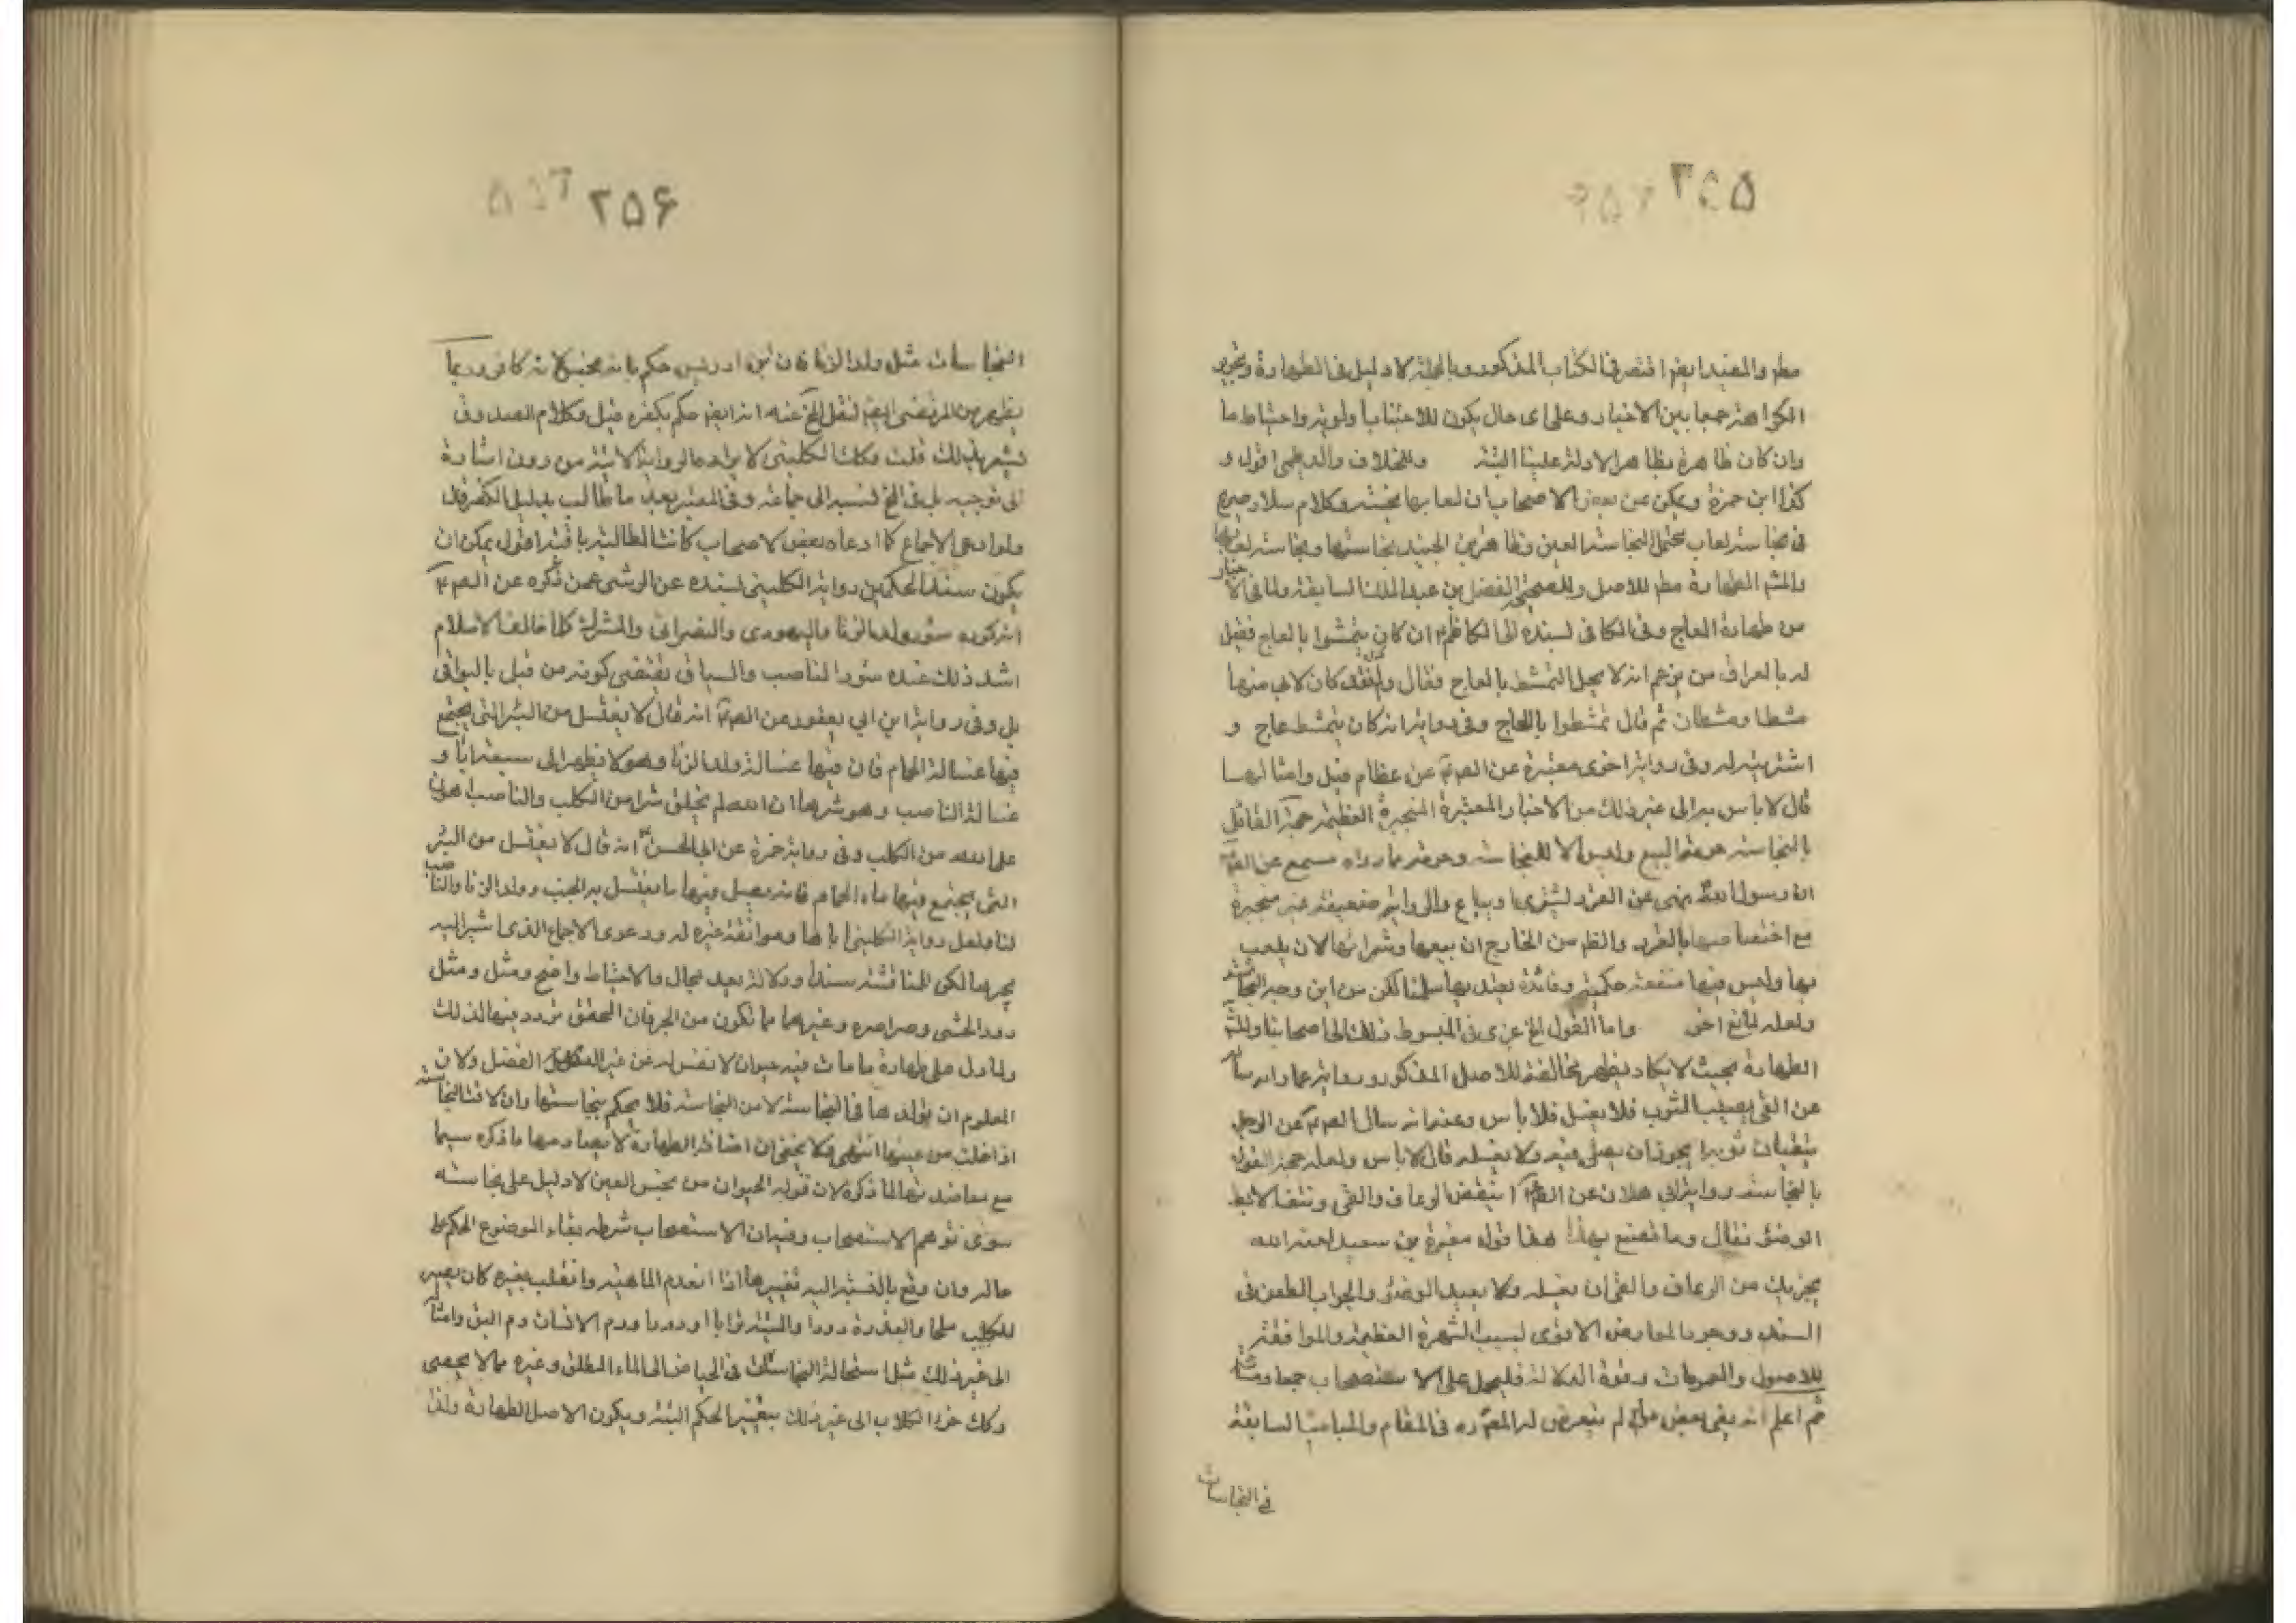 ۳۵۵
مطر والمفيد ايضا اقتصر فى الكتاب المذكور وبالجملة لا دليل فى الطهارة وتجويز
الكراهة جمعا بين الاخبار وعلى اى حال يكون للاجتناب اولويتر واحتياط ما
وان كان ظاهرة بظاهر الادلة علينا البتة وللخلاف والد اقول و
كذا ابن حمزة ويمكن عن بعض الاصحاب ان لعابها نجسة وكلام سلار صريح
فى نجاسة لعاب يحتمل النجاسة العين وظاهر بن الجنيد نجاستها ونجاسة لعابها
والمشهر الطهارة مطر للاصل وللصحيح الفضل بن عبد الملك السابقة ولما فى الاخبار
من طهارة العاج وفى الكافى بسنده الى الكاظم ان كان يتمشط بالعاج فقيل
له بالعراق من يزعم انه لا يحل التمشط بالعاج فقال ولم فقد كان لابى منها
مشط او مشطان ثم قال تمشطوا بالعاج وفى رواية انه كان يتمشط بعاج و
اشتريته له وفى رواية اخرى معتبرة عن الص عن عظام فيل وامثالها
قال لا باس به الى غير ذلك من الاخبار المعتبرة المنجبرة العظيمة حجة القائل
بالنجاسة حرمة البيع وليس الا للنجاسة وحرمته لما رواه مسمع عن الص
ان رسول الله نهى عن القرد ليشرى او يباع والرواية ضعيفة غير منجبرة
مع اختصاصها بالقرد والظ من الخارج ان بيعها وشرائها لان يلعب
بها وليس فيها منفعة حكمية وفائدة يعتد بها سلمنا لكن من اين وجه النجاسة
ولعله لمانع اخر واما القول الخ عزى فى المبسوط ذلك الى اصحابنا والمشهر
الطهارة بحيث لا يكاد يظهر مخالفة للاصل المذكور ورواية عمار انه ساله
عن القئ يصيب الثوب فلا يغسل فلا باس وعنه انه سال الص عن الرجل
يتقيأ فى ثوبه ايجوز ان يصلى فيه ولا يغسله قال لا باس ولعله حجة القول
بالنجاسة رواية ابى هلال عن الص اينقض الرعاف والقئ ونتف الابط
الوضوء فقال وما تصنع بهذا هذا قول مغيرة بن سعيد لعنه الله
يجزيك من الرعاف والقئ ان يغسله ولا يعيد الوضوء والجواب الطعن فى
السند ووجود المعارض الاقوى بسبب الشهرة العظيمة والموافقة
للاصول والعمومات وقوة الدلالة فليحمل على الاستصحاب جمعا
ثم اعلم انه بقى بعض لم يتعرض له المص ره فى المقام والمباحث السابقة
فى النجاسات
۲۵۶
النجاسات مثل ولد الزنا فان ابن ادريس حكم بانه نجس لانه كافر وربما
يظهر من المرتضى ايضا لنقل الخ عنه انه ايضا حكم بكفره قيل وكلام الصدوق
يشعر بذلك قلت وكذا الكلينى لايراده الرواية الاتية من دون اشارة
الى توجيه بل فى الخ نسبه الى جماعة وفى المعتبر بعد ما طالب بدليل الكفر قال
ولو ادعى الاجماع كما ادعاه بعض الاصحاب كانت المطالبة باقية اقول يمكن ان
يكون سند الحكم من رواية الكلينى بسنده عن الوشى عمن ذكره عن الص
انه كره سؤر ولد الزنا واليهودى والنصرانى والمشرك وكلما خالف الاسلام
اشد ذلك عنده سؤر الناصب والسياق يقتضى كونه من قبل بالبواقى
بل وفى رواية ابن ابى يعفور عن الص انه قال لا يغتسل من البئر التى يجتمع
فيها غسالة الحمام فان فيها غسالة ولد الزنا وهو لا يطهر الى سبعة ابا و
غسالة الناصب وهو شرهما ان الله لم يخلق شرا من الكلب والناصب اهون
على الله من الكلب وفى رواية حمزة عن ابى الحسن انه قال لا يغتسل من البئر
التى يجتمع فيها ماء الحمام فانه يسيل فيها ما يغتسل به الجنب وولد الزنا والناصب
لنا ولعل رواية الكلينى اياها وموافقة غيره له ودعوى الاجماع الذى اشير اليه
يجبرها لكن المناقشة سندا ودلالة بعد مجال والاحتياط واضح ومثل ومثل
دود الحشى وصراصره وغيرهما مما تكون من الجر فان المحقق تردد فيها لذلك
ولما دل على طهارة ما مات فيه حيوان لا نفس له من غير الفصل ولان
المعلوم ان تولده ها فى النجاسة لا من النجاسة فلا يحكم بنجاستها وان لاقت النجاسة
اذا خلت من عينها انتهى ولا يخفى ان اصالة الطهارة لا يعارضها ما ذكره سيما
مع معاضدتها لما ذكره لان تولد الحيوان من نجس العين لا دليل على نجاسته
سوى توهم الاستصحاب وفيه ان الاستصحاب شرطه بقاء الموضوع الحكم على
حاله وان وقع بالنسبة اليه تغيير ما اذا انعدم الماهية وانقلب بغيره كان يصير
الكلب ملحا والعذرة دودا والميتة ترابا او دودا ودم الانسان دم البق وامثاله
الى غير ذلك مثل استحالة النجاسات فى الحياض الى الماء المطلق وغيره مما لا يحصى
وكك خرء الكلاب الى غير ذلك بتغيير الحكم البتة ويكون الاصل الطهارة ولذا